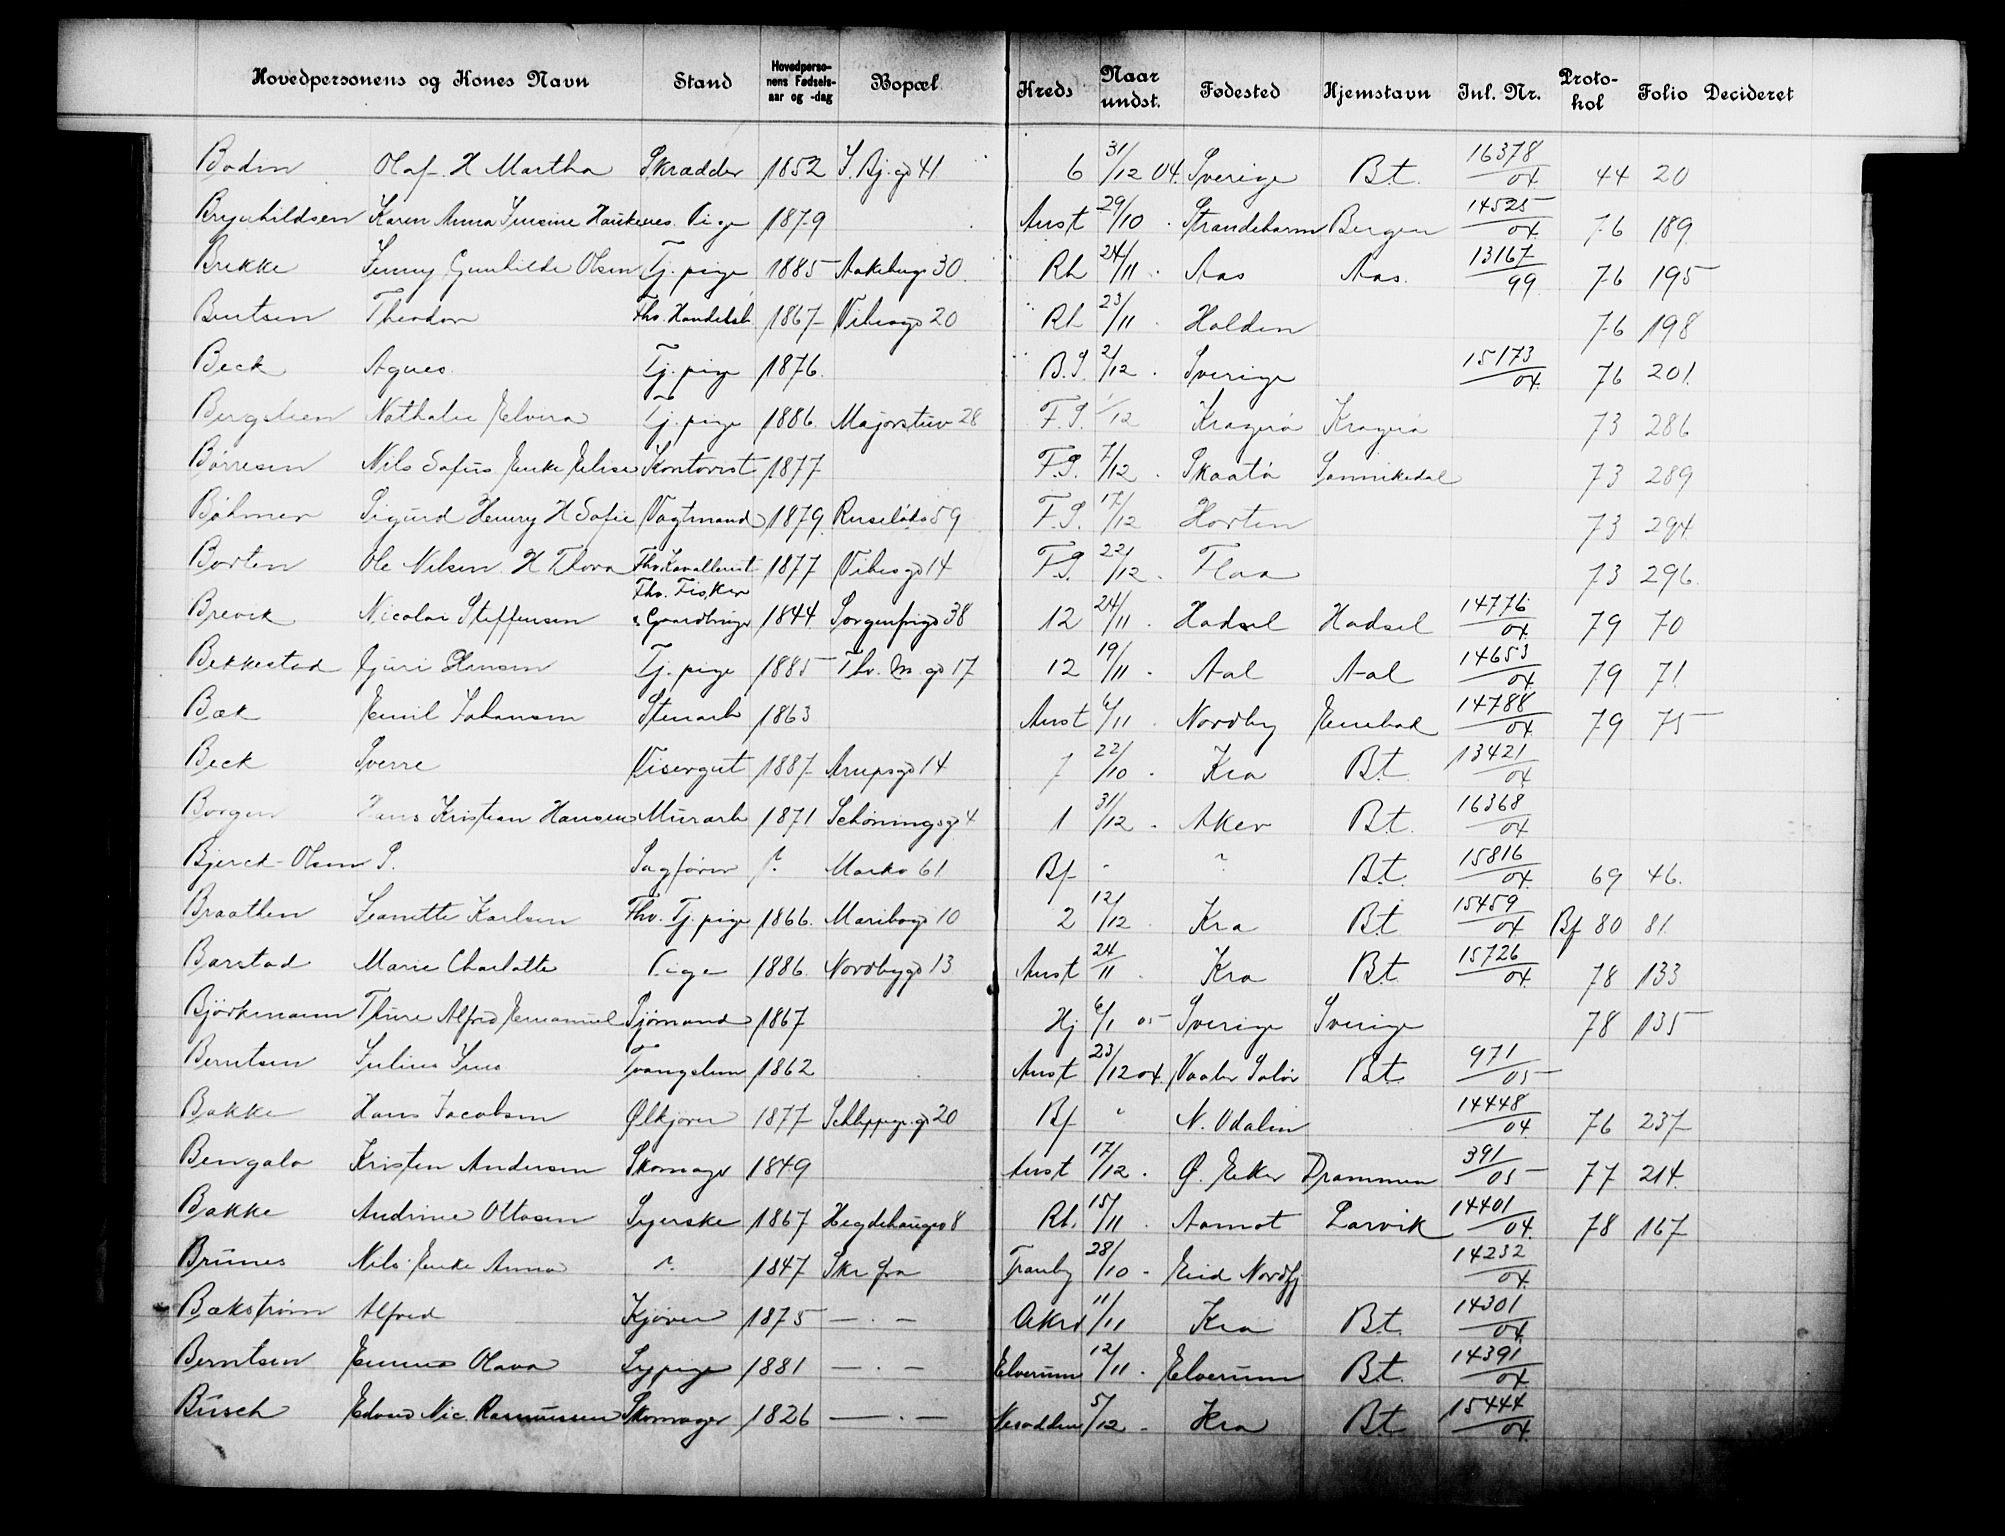 Hovedpersonens og Kones Navn Stand Hovedpersonens Fødselsaar og -dag Bopæl Kreds Naar undst. Fødested Hjemstavn Inl. Nr. Protokol Folio Decideret
Bodin Olaf H Martha Skrædder 1852 S. Bj.gd 41 6 31/12 04. Sverige B.t. 16378/04. 44 20
Brynhildsen Karen Anna Jensine Haukenes. Pige 1879 Aust 29/10 . Strandebarm Bergen 14525/04. 76 189.
Brekke Jenny Gunhilde Olsen Tj. pige 1885 Aakebgs 30 Rh 24/11 . Aas Aas. 13167/99 76 195
Berntsen Theodor Fhv. Handelsb. 1867 Vibesgd 20 Rh 23/11 . Halden 76 198
Beck Agnes. Tj. pige 1876. B.S. 2/12 . Sverige 15173/04. 76 201.
Bergstien Nathalie Elvira Tj. pige 1886. Majorstuv 28 F.S. 1/12 Kragerö Kragerö 73 286
Børresen Nils Sofus Enke Elise Kontorist 1877 F.S. 7/12 . Skaatö Sannikedal 73 289
Bøhmer Sigurd Henry H Sofie Vagtmand 1879. Ruseløks 59 F.S. 17/12 Horten 73 294
Borten Ole Nilsen. H Thora Fhv. Kavallerist 1877 Vibesgd 14 F.S. 22/12 . Flaa 73 296.
Brevik Nicolai Steffensen Fhv. Fisker & Gaardbruger 1844 Sorgenfrigd 38 12 24/11 . Hadsel Hadsel 14776/04. 79 70
Bekkestad Guri Hansen Tj. pige 1885 Thv. M. gd 17 12 19/11 . Aal Aal 14653/04 79 71
Bæk Emil Johansen Stenarb 1863 Aust 6/11 . Nordby Enebak 14788/04 79 75
Beck Sverre Visergut 1887 Arupsgd 14 7 22/10 . Kra B.t. 13421/04
Borgen Hans Kristian Hansen Murarb 1871 Schöningsgd 4 1 31/12 . Aker B.t. 16368/04
Bjerck-Olsen P. Sagfører ? Markv 61 Bf " ? B.t. 15816/04. 69 46.
Braathen Jeanette Karlsen Fhv. Tj. pige 1866. Maribogd 10 2 12/12 . Kra B.t 15459/04 Bf 80 81.
Barstad Marie Charlotte Pige 1886. Nordbygd 13 Aust 24/11 . Kra B.t. 15726/04. 78 133
Björkmann Thure Alfred Emanuel Sjømand 1867 Hj 6/1 05 Sverige Sverige 78 135
Berntsen Julius Jens Tvangslem 1862 Aust 23/12 04. Vaaler Solør B.t 971/05
Bakke Hans Jacobsen Ølkjører 1877 Schleppegr.gd 20 Bf " N. Odalen 14448/04. 76 237
Bengalo Kristen Andersen Skomager 1849 Aust 17/12 . Ø. Eker Drammen 391/05 77 214.
Bakke Andrine Ottosen Syerske 1867 Hegdehaugsv 8 Rh. 15/11 . Aamot Larvik 14401/04. 78 167
Brünes Nils. Enke Anna ? 1847 Skr fra Tranby 28/10 . Eid Nordfj 14232/04.
Bækstrøm Alfred Kjører 1875 — . — Akrd 11/11 Kra B.t. 14301/04.
Berntsen Emma Olava Sypige 1881 — . — Elverum 12/11 . Elverum B.t. 14391/04
Busch Edvard Nic. Rasmussen Skomager 1826 — . — Nesodden 5/12 . Kra B.t 15444/04.